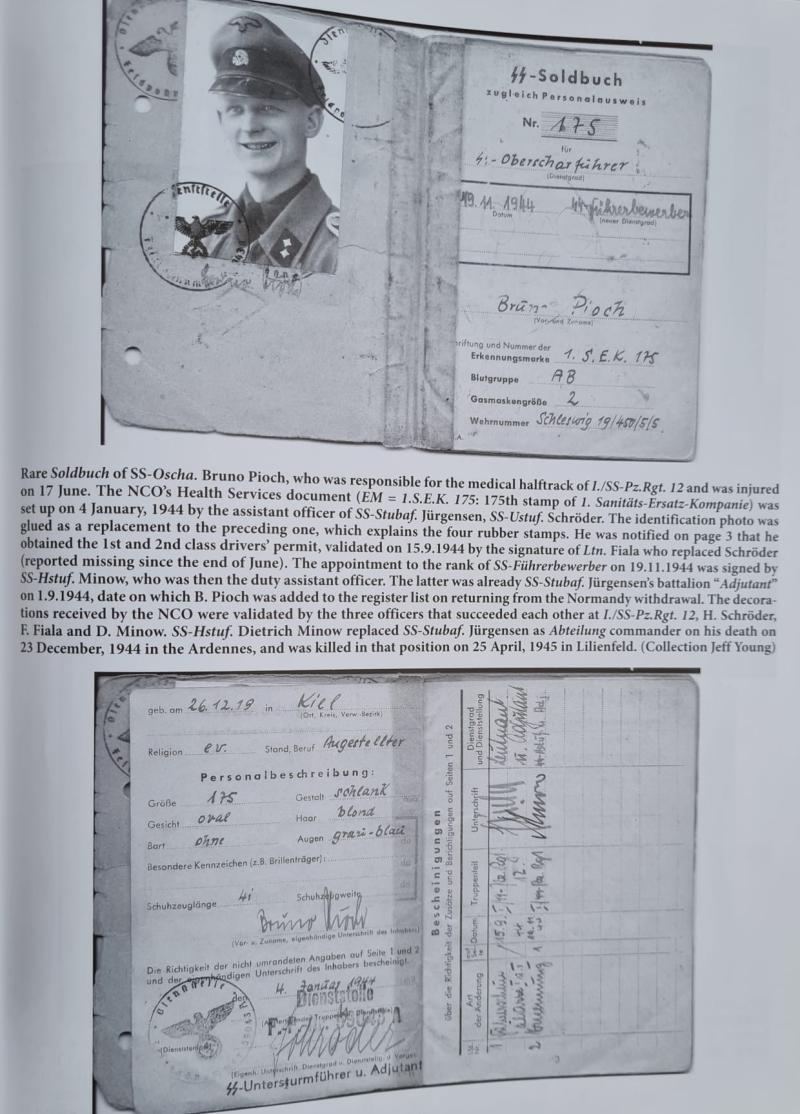 Dienststelle
Feldpost
Dienststelle
SS-Soldbuch
zugleich Personalausweis
Nr. 175
für
SS-Oberscharführer
(Dienstgrad)
19.11.1944 SS-Führerbewerber
Datum (neuer Dienstgrad)
Bruno Pioch
(Vor- und Zuname)
Beschriftung und Nummer der
Erkennungsmarke 1. S.E.K. 175
Blutgruppe AB
Gasmaskengröße 2
Wehrnummer Schleswig 19/450/5/5
Rare Soldbuch of SS-Oscha. Bruno Pioch, who was responsible for the medical halftrack of I./SS-Pz.Rgt. 12 and was injured
on 17 June. The NCO's Health Services document (EM = 1.S.E.K. 175: 175th stamp of 1. Sanitäts-Ersatz-Kompanie) was
set up on 4 January, 1944 by the assistant officer of SS-Stubaf. Jürgensen, SS-Ustuf. Schröder. The identification photo was
glued as a replacement to the preceding one, which explains the four rubber stamps. He was notified on page 3 that he
obtained the 1st and 2nd class drivers' permit, validated on 15.9.1944 by the signature of Ltn. Fiala who replaced Schröder
(reported missing since the end of June). The appointment to the rank of SS-Führerbewerber on 19.11.1944 was signed by
SS-Hstuf. Minow, who was then the duty assistant officer. The latter was already SS-Stubaf. Jürgensen's battalion "Adjutant"
on 1.9.1944, date on which B. Pioch was added to the register list on returning from the Normandy withdrawal. The decora-
tions received by the NCO were validated by the three officers that succeeded each other at I./SS-Pz.Rgt. 12, H. Schröder,
F. Fiala and D. Minow. SS-Hstuf. Dietrich Minow replaced SS-Stubaf. Jürgensen as Abteilung commander on his death on
23 December, 1944 in the Ardennes, and was killed in that position on 25 April, 1945 in Lilienfeld. (Collection Jeff Young)
geb. am 26.12.19 in Kiel
(Ort, Kreis, Verw.-Bezirk)
Religion ev. Stand, Beruf Angestellter
Personalbeschreibung:
Größe 175 Gestalt schlank
Gesicht oval Haar blond
Bart ohne Augen grau-blau
Besondere Kennzeichen (z.B. Brillenträger):
Schuhzeuglänge 41 Schuhzeugweite
Bruno Pioch
(Vor- u. Zuname, eigenhändige Unterschrift des Inhabers)
Die Richtigkeit der nicht umrandeten Angaben auf Seite 1 und 2
und der eigenhändigen Unterschrift des Inhabers bescheinigt.
4. Januar 1944
Dienststelle
Schröder
(Eigenh. Unterschrift, Dienstgrad u. Dienststellg. d. Vorges.)
SS-Untersturmführer u. Adjutant
Bescheinigungen
über die Richtigkeit der Zusätze und Berichtigungen auf Seiten 1 und 2
Art der Änderung Datum Truppenteil Unterschrift Dienstgrad und Dienststellung
1 15.9. Leutnant u. Adjutant
2 Ernennung